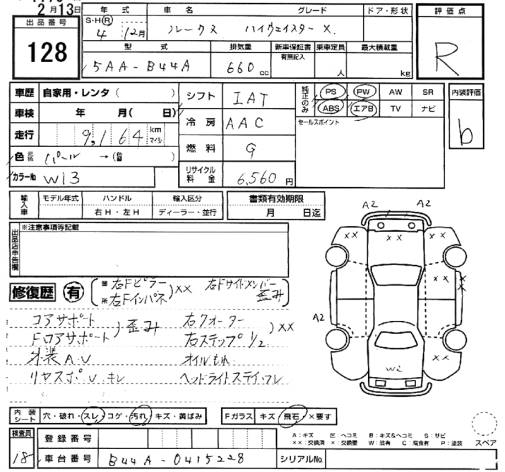 2月13日
出品番号
128
年式 車名 グレード ドア・形状
S・H・R
4 年 12月 ルークス ハイウェイスター X
評価点
R
型式 排気量 新車保証書 乗車定員 最大積載量
有無記入
5AA-B44A 660cc 人 kg
車歴 自家用・レンタ( )
車検 年 月( 日)
走行 9,164 km マイル
色 パール →(替)
カラーNo W13
シフト IAT
冷房 AAC
燃料 G
リサイクル料金 6,560円
純正のみ
PS PW AW SR
ABS エアB TV ナビ
セールスポイント
内装評価
b
輸入車 モデル年式 ハンドル 輸入区分
右H・左H ディーラー・並行
書類有効期限
月 日迄
出品店申告欄
※注意事項等記載
修復歴 有
右Fピラー
右Fインパネ
××
右Fサイドメンバー
歪み
コアサポート
Fロアサポート
歪み
外装A.U
リヤスポU キレ
右クォーター
右ステップ1/2
××
オイルもれ
ヘッドライトステイフレ
A2 A2
×× ××
××
A2
W1
内装シート 穴・破れ・スレ・コゲ・汚れ・キズ・黄ばみ
Fガラス キズ・飛石・×要す
A:キズ E:ヘコミ B:キズ&ヘコミ S:サビ
××:交換済 ×:交換要 W:波有 C:腐食 P:塗装
スペア
検査員
18
登録番号
車台番号 B44A-0415228
シリアルNo.